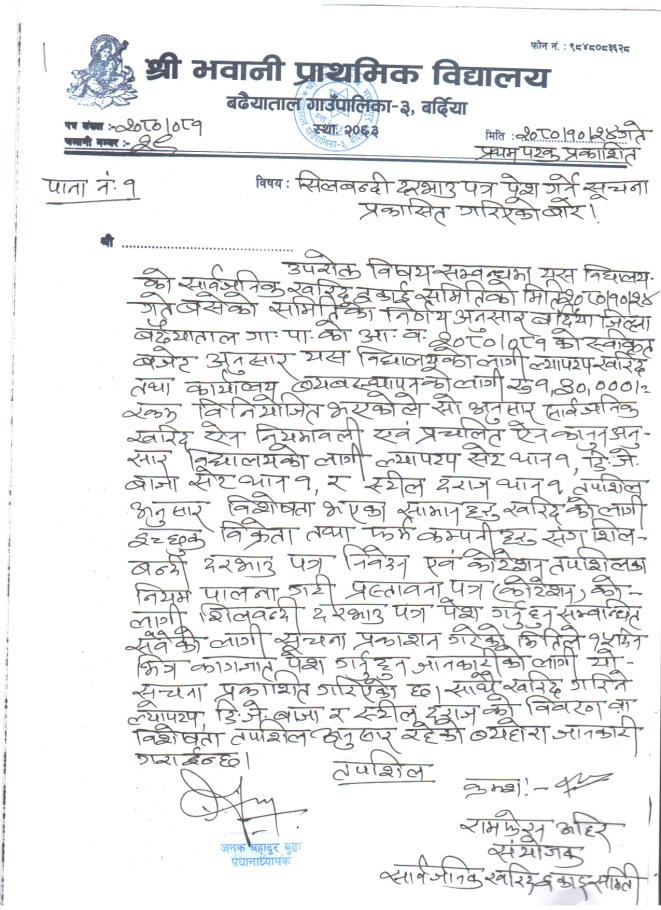 फोन नं. : ९८४८०८३६२८
श्री भवानी प्राथमिक विद्यालय
बढैयाताल गाउँपालिका-३, बर्दिया
स्था. २०६३
पत्र संख्या :- २०८०/०८१
चलानी नम्बर :- २०
मिति : २०८०/१०/२४ गते
प्रथम पटक प्रकाशित
पाना नं. १
विषय : सिलबन्दी दरभाउ पत्र पेश गर्ने सूचना
प्रकासित गरिएको बारे !
श्री
उपरोक्त विषय सम्बन्धमा यस विद्यालय-
को सार्वजनिक खरिद इकाई समितिको मिति २०८०/१०/२४
गते बसेको समितिको निर्णय अनुसार बर्दिया जिल्ला
बढैयाताल गा. पा. को आ. व. २०८०/०८१ को स्वीकृत
बजेट अनुसार यस विद्यालयको लागी ल्यापटप खरिद
तथा कार्यालय ब्यबस्थापनको लागी रु १,४०,०००।=
रकम विनियोजित भएकोले सो अनुसार सार्वजनिक
खरिद ऐन नियमावली एवं प्रचलित ऐन कानुन अनु-
सार विद्यालयको लागी ल्यापटप सेट थान १, डि.जे.
बाजा सेट थान १, र स्टील दराज थान १, तपशिल
अनुसार विशेषता भएका सामान हरु खरिद को लागी
इच्छुक विक्रेता तथा फर्म कम्पनी हरु संग शिल-
बन्दी दरभाउ पत्र निवेदन एवं कोटेशन तपशिलका
नियम पालना गरी प्रस्तावना पत्र (कोटेशन) को-
लागी शिलवन्दी दरभाउ पत्र पेश गर्नुहुन सम्बन्धित
सबैको लागी सूचना प्रकाशन गरेको मितिले १५ दिन
भित्र कागजात पेश गर्नुहुन जानकारीको लागी यो-
सूचना प्रकाशित गरिएको छ। साथै खरिद गरिने
ल्यापटप, डि.जे. बाजा र स्टील दराज को विवरण वा
विशेषता तपशिल अनुसार रहेको ब्यहोरा जानकारी
गराईन्छ।
तपशिल
क्रमश :-
जनक बहादुर बुढा
प्रधानाध्यापक
अहिर
संयोजक
सार्वजनिक खरिद इकाइ समिती